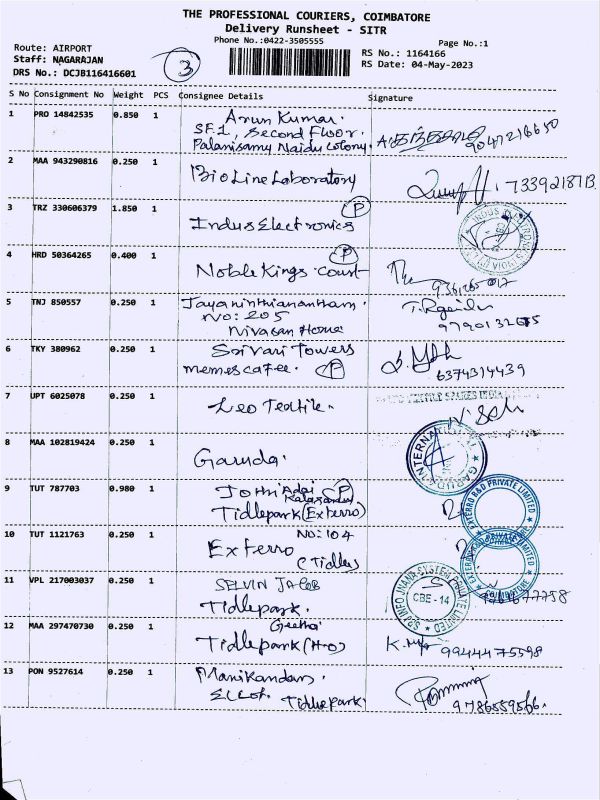 THE PROFESSIONAL COURIERS, COIMBATORE
Delivery Runsheet - SITR
Phone No.:0422-3505555
Page No.:1
Route: AIRPORT
Staff: NAGARAJAN
DRS No.: DCJB116416601
3
RS No.: 1164166
RS Date: 04-May-2023
S No Consignment No Weight PCS Consignee Details Signature
1 PRO 14842535 0.850 1 Arun Kumar.
SF.1, Second Floor.
Palanisamy Naidu Colony. 9047216650
2 MAA 943290816 0.250 1 BioLine Laboratory
3 TRZ 330606379 1.850 1 P
Indus Electronics
4 HRD 50364265 0.400 1 P
Noble Kings Court
5 TNJ 850557 0.250 1
No: 205
Nivasan Home
6 TKY 380962 0.250 1 Srivari Towers
memes cafee. P 6374314439
7 UPT 6025078 0.250 1 Leo Textile.
8 MAA 102819424 0.250 1 Garuda.
9 TUT 787703 0.980 1 P
Tidlepark (Exterro)
EXTERRO R&D PRIVATE LIMITED
10 TUT 1121763 0.250 1 No: 104
Exterro
(Tidle)
11 VPL 217003037 0.250 1 SELVIN JACOB
Tidlepark.
CBE - 14
12 MAA 297470730 0.250 1 Geetha
Tidlepark (H-O) 9944475598
13 PON 9527614 0.250 1 Manikandan.
Tidlepark 9786559566.